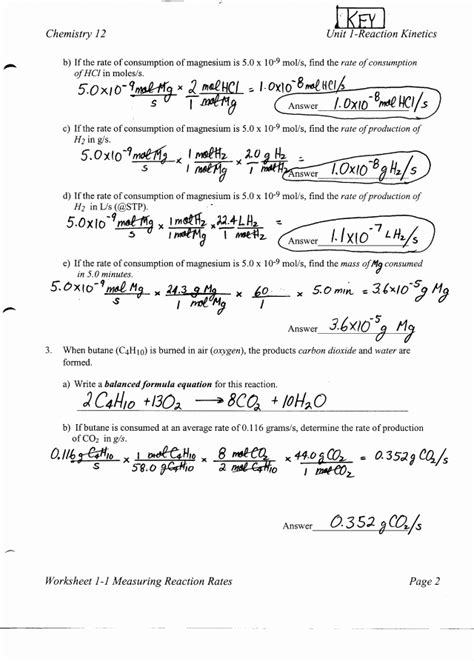 KEY
Chemistry 12 Unit 1-Reaction Kinetics
b) If the rate of consumption of magnesium is 5.0 x 10-9 mol/s, find the rate of consumption
of HCl in moles/s.
5.0x10⁻⁹ mol Mg/s x 2 mol HCl/1 mol Mg = 1.0x10⁻⁸ mol HCl/s
Answer 1.0x10⁻⁸ mol HCl/s
c) If the rate of consumption of magnesium is 5.0 x 10-9 mol/s, find the rate of production of
H2 in g/s.
5.0x10⁻⁹ mol Mg/s x 1 mol H2/1 mol Mg x 2.0 g H2/1 mol H2 =
Answer 1.0x10⁻⁸ g H2/s
d) If the rate of consumption of magnesium is 5.0 x 10-9 mol/s, find the rate of production of
H2 in L/s (@STP).
5.0x10⁻⁹ mol Mg/s x 1 mol H2/1 mol Mg x 22.4 L H2/1 mol H2
Answer 1.1x10⁻⁷ L H2/s
e) If the rate of consumption of magnesium is 5.0 x 10-9 mol/s, find the mass of Mg consumed
in 5.0 minutes.
5.0x10⁻⁹ mol Mg/s x 24.3 g Mg/1 mol Mg x 60/1 x 5.0 min = 3.6x10⁻⁵ g Mg
Answer 3.6x10⁻⁵ g Mg
3. When butane (C4H10) is burned in air (oxygen), the products carbon dioxide and water are
formed.
a) Write a balanced formula equation for this reaction.
2 C4H10 + 13O2 → 8CO2 + 10H2O
b) If butane is consumed at an average rate of 0.116 grams/s, determine the rate of production
of CO2 in g/s.
0.116 g C4H10/s x 1 mol C4H10/58.0 g C4H10 x 8 mol CO2/2 mol C4H10 x 44.0 g CO2/1 mol CO2 = 0.352 g CO2/s
Answer 0.352 g CO2/s
Worksheet 1-1 Measuring Reaction Rates Page 2